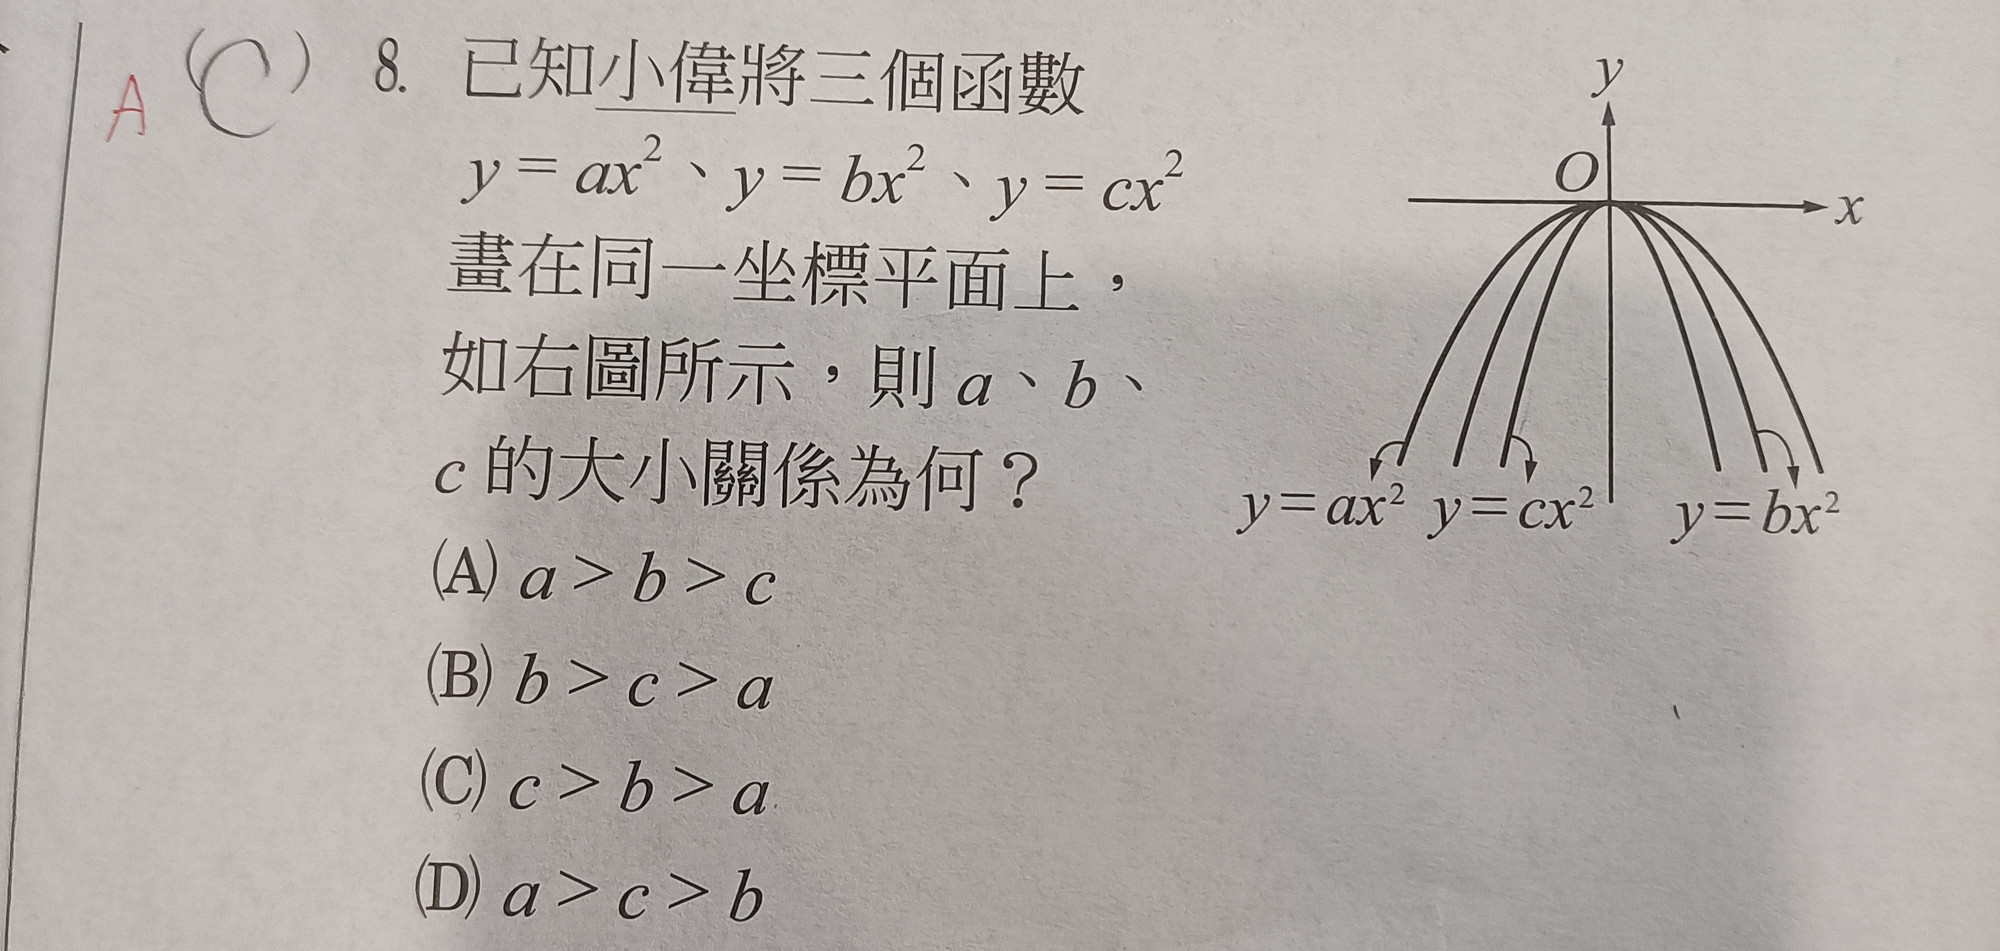 A (C) 8. 已知小偉將三個函數
y = ax²、y = bx²、y = cx²
畫在同一坐標平面上，
如右圖所示，則 a、b、
c 的大小關係為何？
(A) a > b > c
(B) b > c > a
(C) c > b > a
(D) a > c > b
y
O
x
y=ax² y=cx² y=bx²